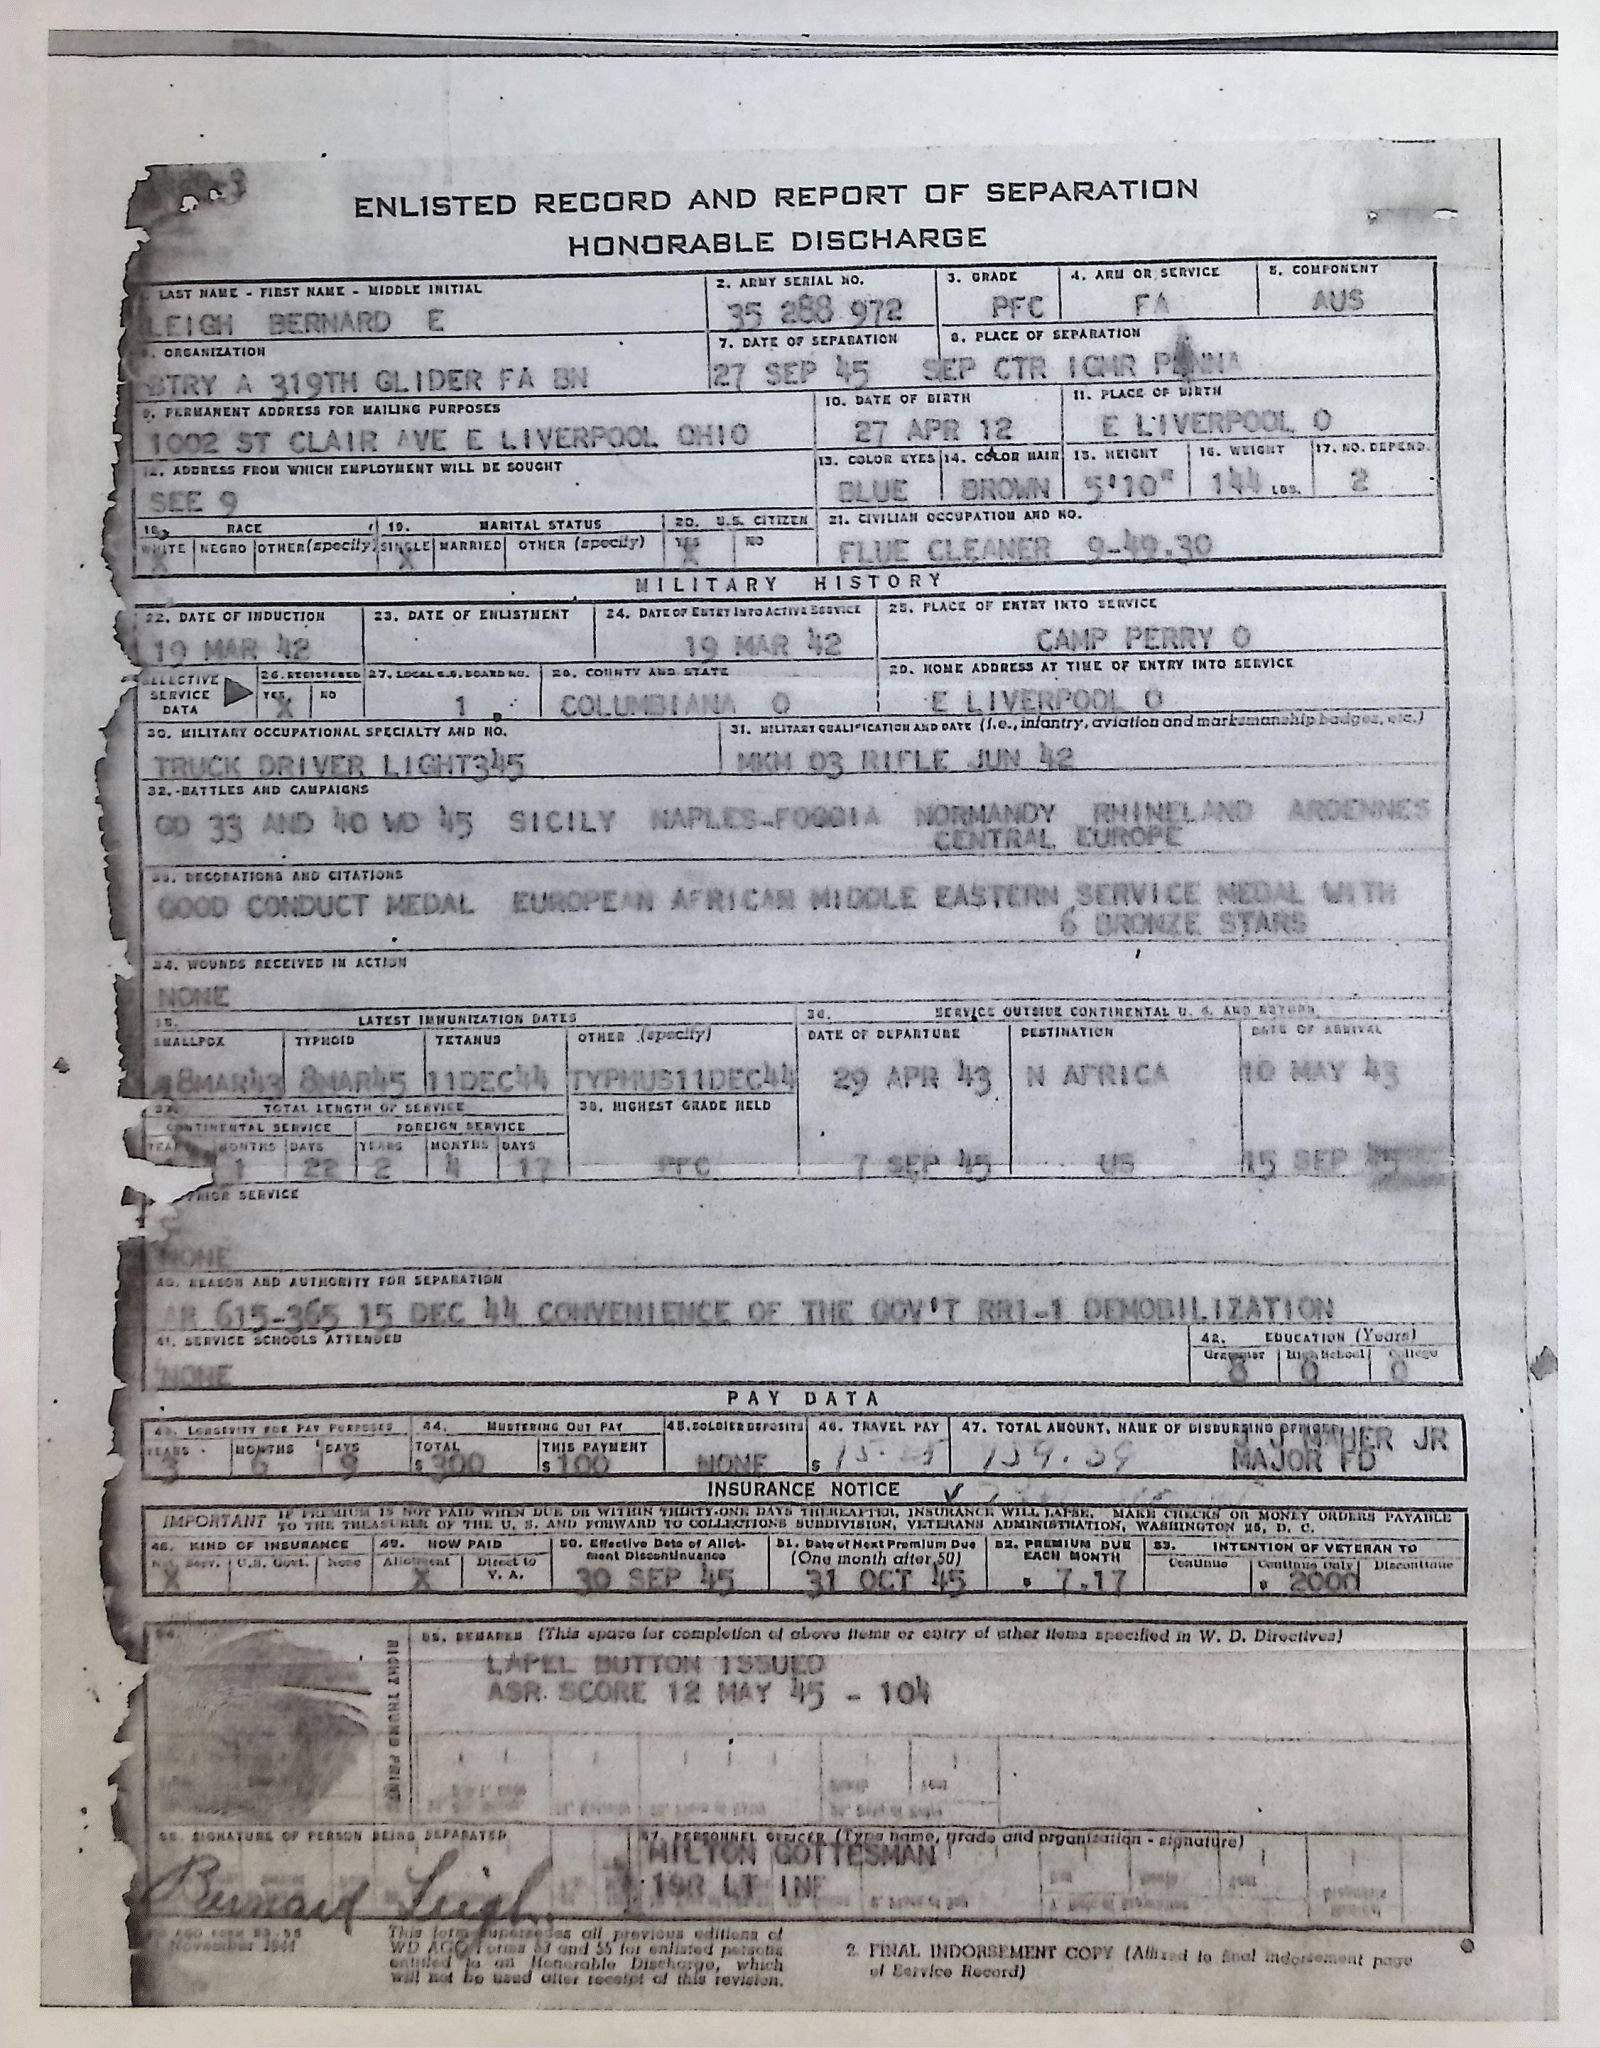 ENLISTED RECORD AND REPORT OF SEPARATION
HONORABLE DISCHARGE
LAST NAME - FIRST NAME - MIDDLE INITIAL
LEIGH BERNARD E
2. ARMY SERIAL NO.
35 288 972
3. GRADE
PFC
4. ARM OR SERVICE
FA
5. COMPONENT
AUS
6. ORGANIZATION
BTRY A 319TH GLIDER FA BN
7. DATE OF SEPARATION
27 SEP 45
8. PLACE OF SEPARATION
SEP CTR IGMR PENNA
9. PERMANENT ADDRESS FOR MAILING PURPOSES
1002 ST CLAIR AVE E LIVERPOOL OHIO
10. DATE OF BIRTH
27 APR 12
11. PLACE OF BIRTH
E LIVERPOOL O
12. ADDRESS FROM WHICH EMPLOYMENT WILL BE SOUGHT
SEE 9
13. COLOR EYES
BLUE
14. COLOR HAIR
BROWN
15. HEIGHT
5'10"
16. WEIGHT
144 LBS.
17. NO. DEPEND.
2
18. RACE
WHITE NEGRO OTHER (specify)
X
19. MARITAL STATUS
SINGLE MARRIED OTHER (specify)
X
20. U.S. CITIZEN
YES NO
X
21. CIVILIAN OCCUPATION AND NO.
FLUE CLEANER 9-49.30
MILITARY HISTORY
22. DATE OF INDUCTION
19 MAR 42
23. DATE OF ENLISTMENT
24. DATE OF ENTRY INTO ACTIVE SERVICE
19 MAR 42
25. PLACE OF ENTRY INTO SERVICE
CAMP PERRY O
SELECTIVE SERVICE DATA
26. REGISTERED
YES NO
X
27. LOCAL S.S. BOARD NO.
1
28. COUNTY AND STATE
COLUMBIANA O
29. HOME ADDRESS AT TIME OF ENTRY INTO SERVICE
E LIVERPOOL O
30. MILITARY OCCUPATIONAL SPECIALTY AND NO.
TRUCK DRIVER LIGHT345
31. MILITARY QUALIFICATION AND DATE (i.e., infantry, aviation and marksmanship badges, etc.)
MKM 03 RIFLE JUN 42
32. BATTLES AND CAMPAIGNS
GO 33 AND 40 WD 45 SICILY NAPLES-FOGGIA NORMANDY RHINELAND ARDENNES
CENTRAL EUROPE
33. DECORATIONS AND CITATIONS
GOOD CONDUCT MEDAL EUROPEAN AFRICAN MIDDLE EASTERN SERVICE MEDAL WITH
6 BRONZE STARS
34. WOUNDS RECEIVED IN ACTION
NONE
35. LATEST IMMUNIZATION DATES
SMALLPOX TYPHOID TETANUS OTHER (specify)
8MAR43 8MAR45 11DEC44 TYPHUS11DEC44
36. SERVICE OUTSIDE CONTINENTAL U. S. AND RETURN
DATE OF DEPARTURE DESTINATION DATE OF ARRIVAL
29 APR 43 N AFRICA 10 MAY 43
7 SEP 45 US 15 SEP
37. TOTAL LENGTH OF SERVICE
CONTINENTAL SERVICE FOREIGN SERVICE
YEARS MONTHS DAYS YEARS MONTHS DAYS
1 22 2 4 17
38. HIGHEST GRADE HELD
PFC
PRIOR SERVICE
NONE
40. REASON AND AUTHORITY FOR SEPARATION
AR 615-365 15 DEC 44 CONVENIENCE OF THE GOV'T RR1-1 DEMOBILIZATION
41. SERVICE SCHOOLS ATTENDED
NONE
42. EDUCATION (Years)
Grammar High School College
8 0 0
PAY DATA
43. LONGEVITY FOR PAY PURPOSES
YEARS MONTHS DAYS
3 6 9
44. MUSTERING OUT PAY
TOTAL THIS PAYMENT
$ 300 $ 100
45. SOLDIER DEPOSITS
NONE
46. TRAVEL PAY
$
47. TOTAL AMOUNT, NAME OF DISBURSING OFFICER
JR
MAJOR FD
INSURANCE NOTICE
IMPORTANT IF PREMIUM IS NOT PAID WHEN DUE OR WITHIN THIRTY-ONE DAYS THEREAFTER, INSURANCE WILL LAPSE. MAKE CHECKS OR MONEY ORDERS PAYABLE
TO THE TREASURER OF THE U. S. AND FORWARD TO COLLECTIONS SUBDIVISION, VETERANS ADMINISTRATION, WASHINGTON 25, D. C.
48. KIND OF INSURANCE
Nat. Serv. U.S. Govt. None
X
49. HOW PAID
Allotment Direct to V. A.
X
50. Effective Date of Allotment Discontinuance
30 SEP 45
51. Date of Next Premium Due (One month after 50)
31 OCT 45
52. PREMIUM DUE EACH MONTH
$ 7.17
53. INTENTION OF VETERAN TO
Continue Continue Only Discontinue
$ 2000
54.
RIGHT THUMB PRINT
55. REMARKS (This space for completion of above items or entry of other items specified in W. D. Directives)
LAPEL BUTTON ISSUED
ASR SCORE 12 MAY 45 - 104
56. SIGNATURE OF PERSON BEING SEPARATED
Bernard Leigh
57. PERSONNEL OFFICER (Type name, grade and organization - signature)
MILTON GOTTESMAN
1ST LT INF
WD AGO FORM 53-55
November 1944
This form supersedes all previous editions of
WD AGO Forms 53 and 55 for enlisted persons
entitled to an Honorable Discharge, which
will not be used after receipt of this revision.
2 FINAL INDORSEMENT COPY (Affixed to final indorsement page
of Service Record)